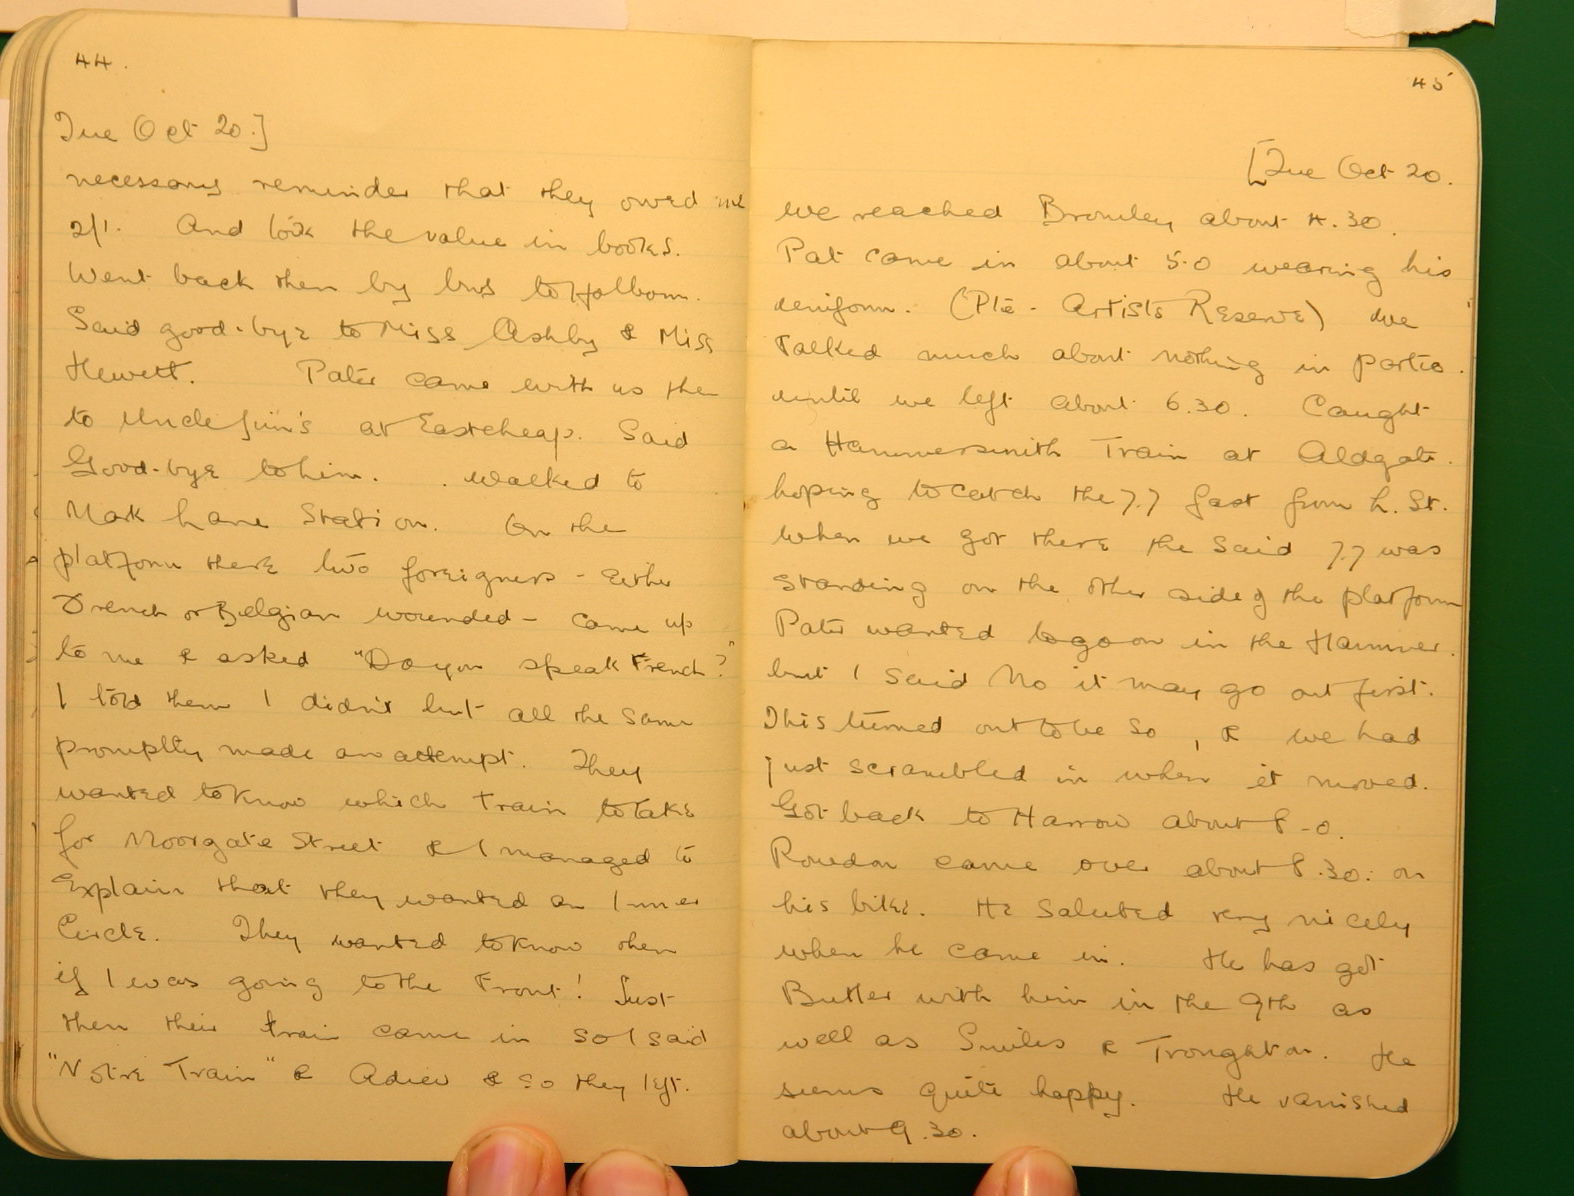 44.
Tue Oct 20.]
necessary reminder that they owed me
2/1. And took the value in books.
Went back then by bus to Holborn.
Said good-bye to Miss Ashby & Miss
Hewett. Pater came with us then
to Uncle Jim's at Eastcheap. Said
Good-bye to him. walked to
Mark Lane Station. On the
platform there two foreigners - Either
French or Belgian wounded - came up
to me & asked "Do you speak French?"
I told them I didn't but all the same
promptly made an attempt. They
wanted to know which train to take
for Moorgate Street & I managed to
Explain that they wanted an Inner
Circle. They wanted to know then
if I was going to the Front! Just
then their train came in so I said
"Notre Train" & Adieu & so they left.
45
[Tue Oct 20.
We reached Bromley about 4.30.
Pat came in about 5.0 wearing his
uniform. (Pte - Artists Reserve) We
talked much about nothing in partic.
until we left about 6.30. Caught
a Hammersmith Train at Aldgate.
hoping to catch the 7.7 fast from L. St.
When we got there the said 7.7 was
standing on the other side of the platform
Pater wanted to go on in the Hammer.
but I said No it may go out first.
This turned out to be so, & we had
just scrambled in when it moved.
Got back to Harrow about 8-0.
came over about 8.30. on
his bike. He saluted very nicely
when he came in. He has got
Butler with him in the 9th as
well as Smiles & Troughton. He
seems quite happy. He vanished
about 9.30.